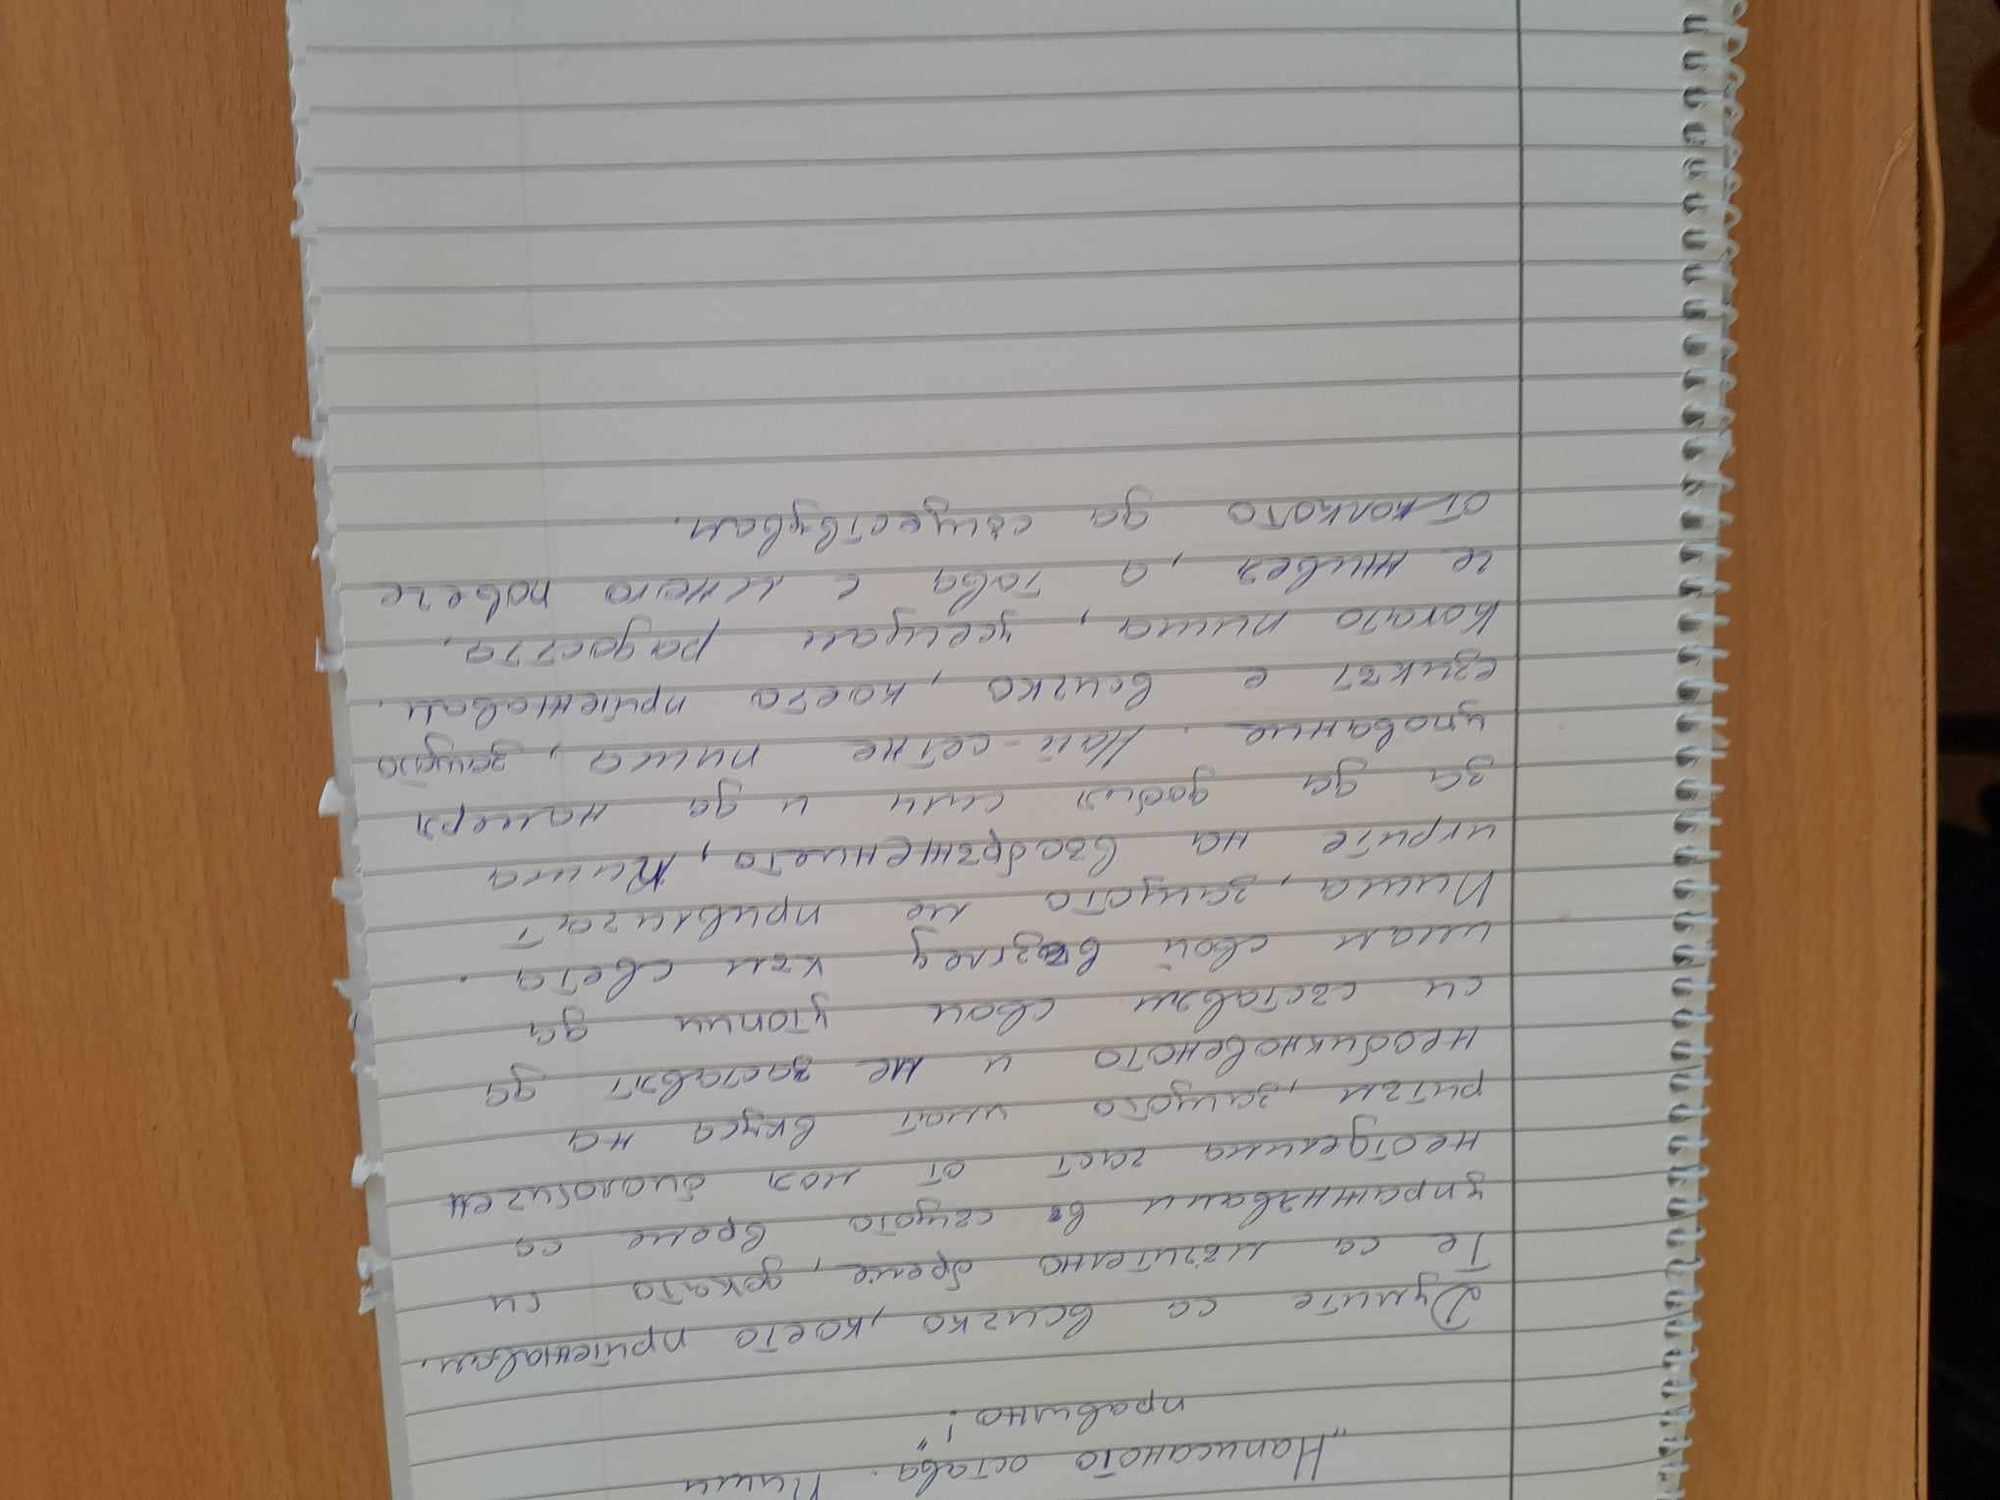 „Написаното остава. Пиши
правилно!“
Думите са всичко, което притежавам.
Те са мъчително бреме, докато си
упражнявам в същото време са
неотделима част от моя биологичен
ритъм, защото имат вкуса на
необикновеното и ме заставят да
си съставям свои утопии да
имам свой възглед към света.
Пиша, защото ме привличат
игрите на въображението, Пиша
за да добия сили и да намеря
упование. Най-сетне пиша, защото
езикът е всичко, което притежавам.
Когато пиша, усещам радостта,
че живея, а това е много повече
отколкото да съществувам.